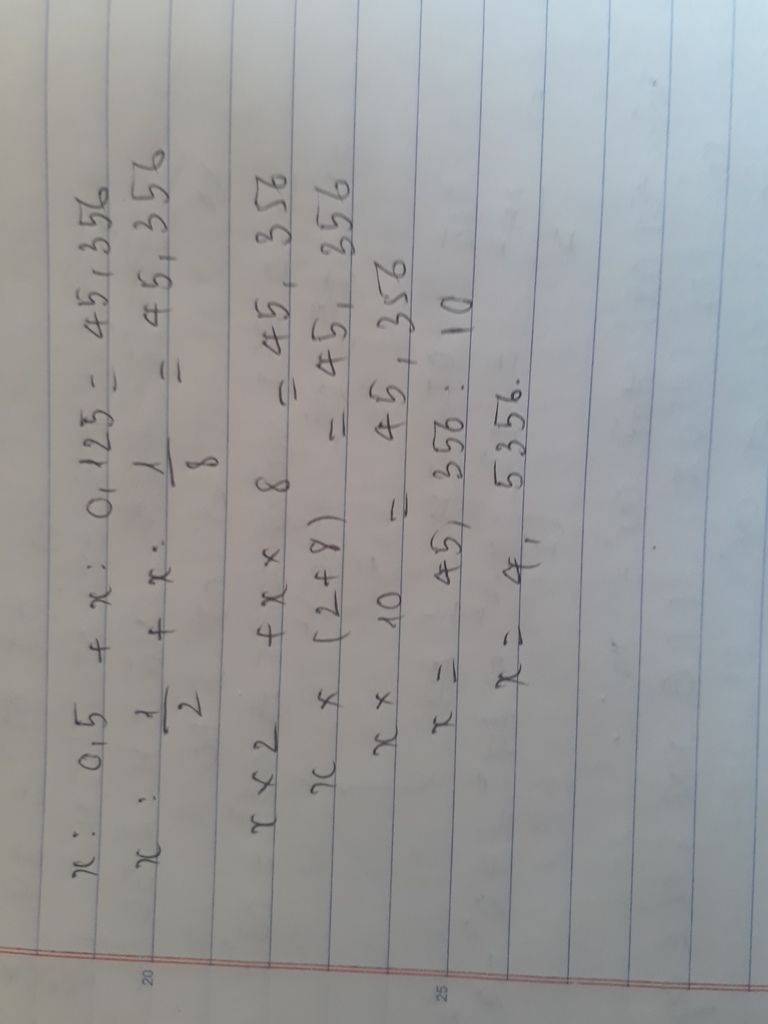 x : 0,5 + x : 0,125 = 45,356
x : 1/2 + x : 1/8 = 45,356
x × 2 + x × 8 = 45,356
x × (2+8) = 45,356
x × 10 = 45,356
x = 45,356 : 10
x = 4,5356.
20
25